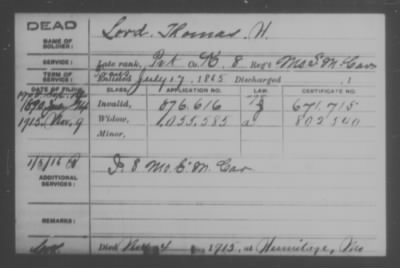 DEAD
NAME OF SOLDIER: Lord, Thomas W.
SERVICE: Late rank, Pvt Co. K, 8 Reg't Mo. S. M. Cav
TERM OF SERVICE: Enlisted July 17, 1865 Discharged , 1
DATE OF FILING. CLASS. APPLICATION NO. LAW. CERTIFICATE NO.
Invalid, 876.616 671.715
1915, Nov. 9 Widow, 1,055,585 a 802340
Minor,
ADDITIONAL SERVICES: 8 Mo. E. M. Cav
REMARKS:
Died 1915, at Hermitage, Mo